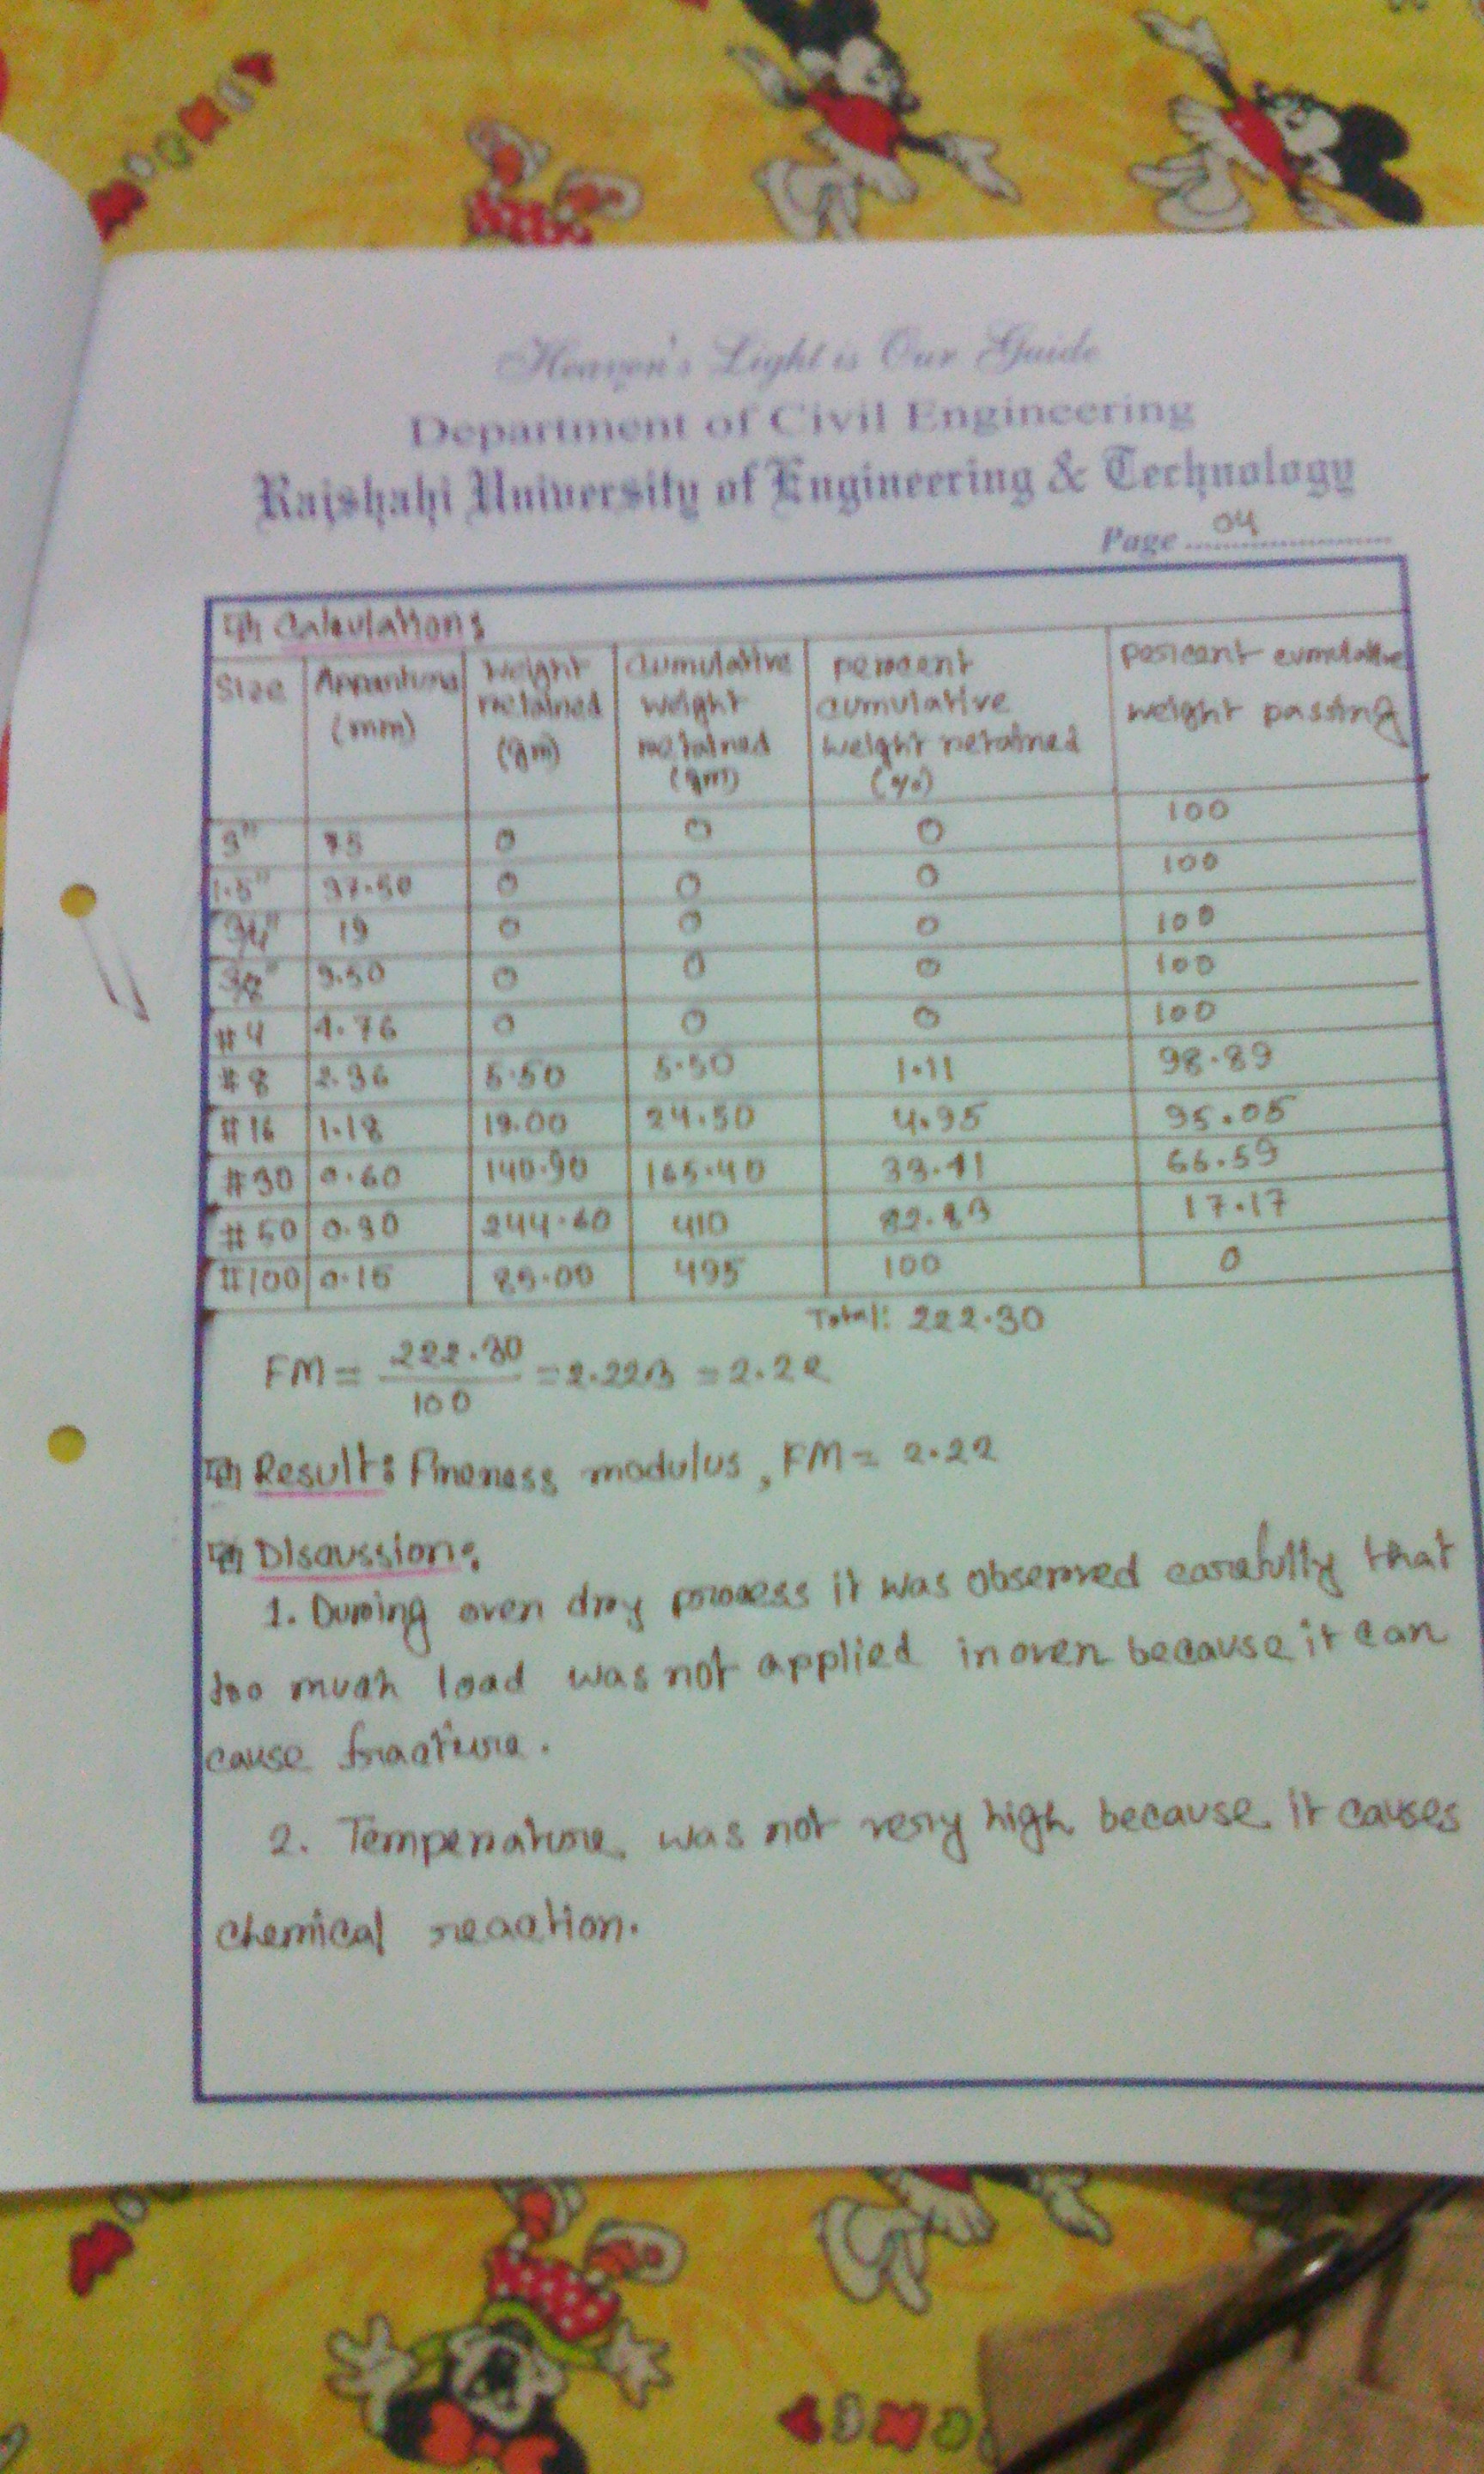 Heaven's Light is Our Guide
Department of Civil Engineering
Rajshahi University of Engineering & Technology
Page 04
Calculations
Size | Apparture (mm) | Weight retained (gm) | Cumulative weight retained (gm) | percent cumulative weight retained (%) | percent cumulative weight passing
3" | 75 | 0 | 0 | 0 | 100
1.5" | 37.50 | 0 | 0 | 0 | 100
3/4" | 19 | 0 | 0 | 0 | 100
3/8" | 9.50 | 0 | 0 | 0 | 100
#4 | 4.76 | 0 | 0 | 0 | 100
#8 | 2.36 | 5.50 | 5.50 | 1.11 | 98.89
#16 | 1.18 | 19.00 | 24.50 | 4.95 | 95.05
#30 | 0.60 | 140.90 | 165.40 | 33.41 | 66.59
#50 | 0.30 | 244.60 | 410 | 82.83 | 17.17
#100 | 0.15 | 85.00 | 495 | 100 | 0
Total: 222.30
FM = 222.30 / 100 = 2.223 = 2.22
Result: Fineness modulus, FM = 2.22
Discussion:
1. During oven dry process it was observed carefully that
too much load was not applied in oven because it can
cause fracture.
2. Temperature was not very high because it causes
chemical reaction.